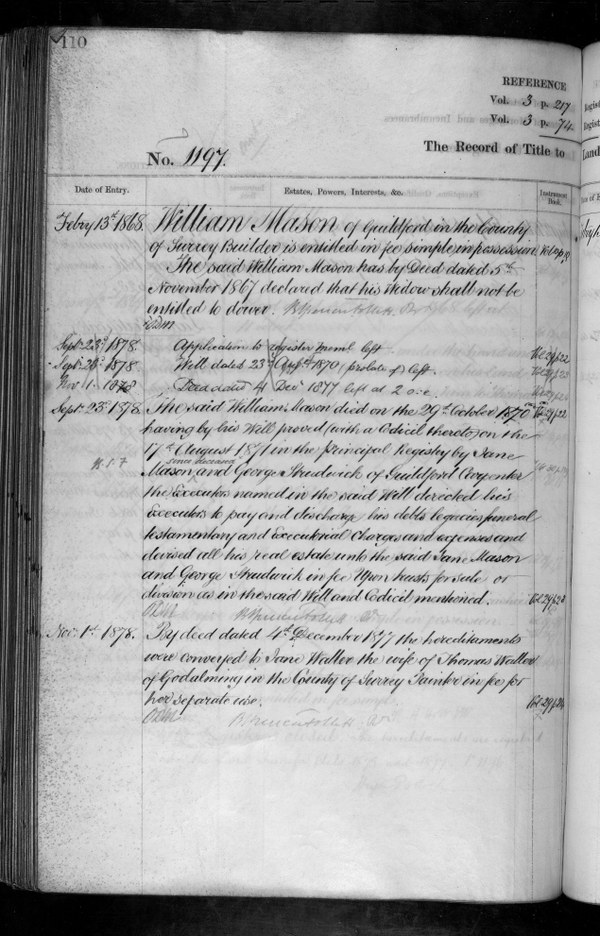 110
REFERENCE
Vol. 3 p. 217
Vol. 3 p. 74
No. 1197.
The Record of Title to
Land
Date of Entry.
Estates, Powers, Interests, &c.
Instrument Book.
Febry 13th 1868.
William Mason of Guildford in the County
of Surrey Builder is entitled in fee simple in possession
The said William Mason has by Deed dated 5th
November 1867 declared that his widow shall not be
entitled to dower.
Sept. 23rd 1878.
Application to register meml. left
Sept. 28th 1878.
Will dated 23rd 1870 (probate of) left
Nov. 1. 1878
Deed dated 4 Decr 1877 left at 2
Sept. 28th 1878.
The said William Mason died on the 29th October 1870
having by his Will proved (with a Codicil thereto) on the
17th August 1871 in the Principal Registry by Jane
since deceased
Mason and George Strudwick of Guildford Carpenter
the Executors named in the said Will directed his
Executors to pay and discharge his debts legacies funeral
testamentary and Executorial Charges and expenses and
devised all his real estate unto the said Jane Mason
and George Strudwick in fee Upon trusts for sale or
division as in the said Will and Codicil mentioned.
Nov. 1st 1878.
By deed dated 4th December 1877 the hereditaments
were conveyed to Jane Walter the wife of Thomas Walter
of Godalming in the County of Surrey Painter in fee for
her separate use.